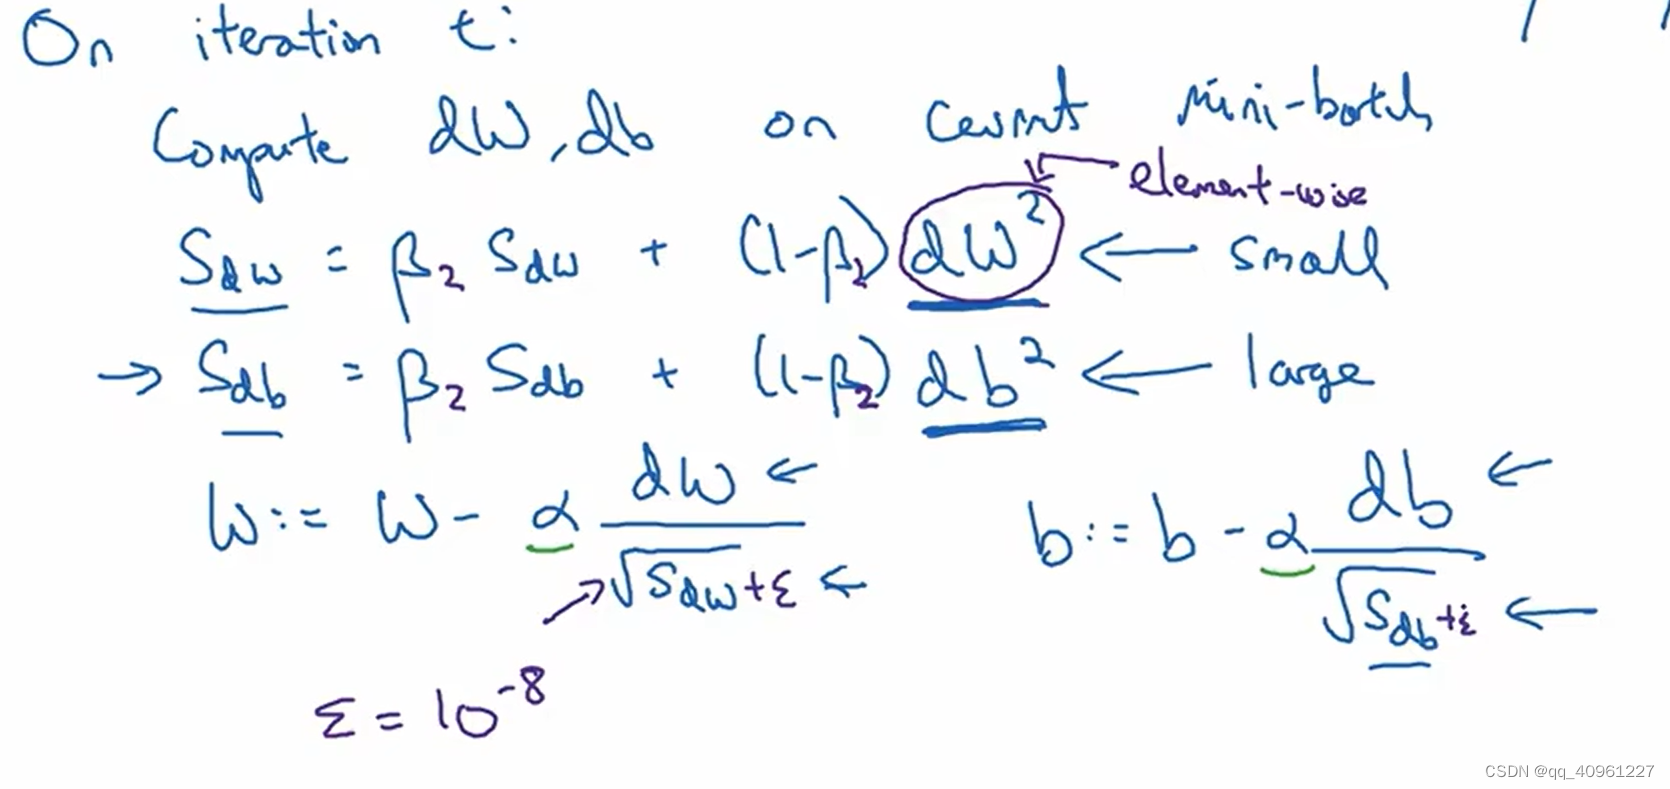 On iteration t:
Compute dW, db on current mini-batch
element-wise
S_dW = β₂ S_dW + (1-β₂) dW² ← small
→ S_db = β₂ S_db + (1-β₂) db² ← large
W := W - α dW / (√S_dW + ε) ← b := b - α db / (√S_db + ε) ←
ε = 10⁻⁸
CSDN @qq_40961227